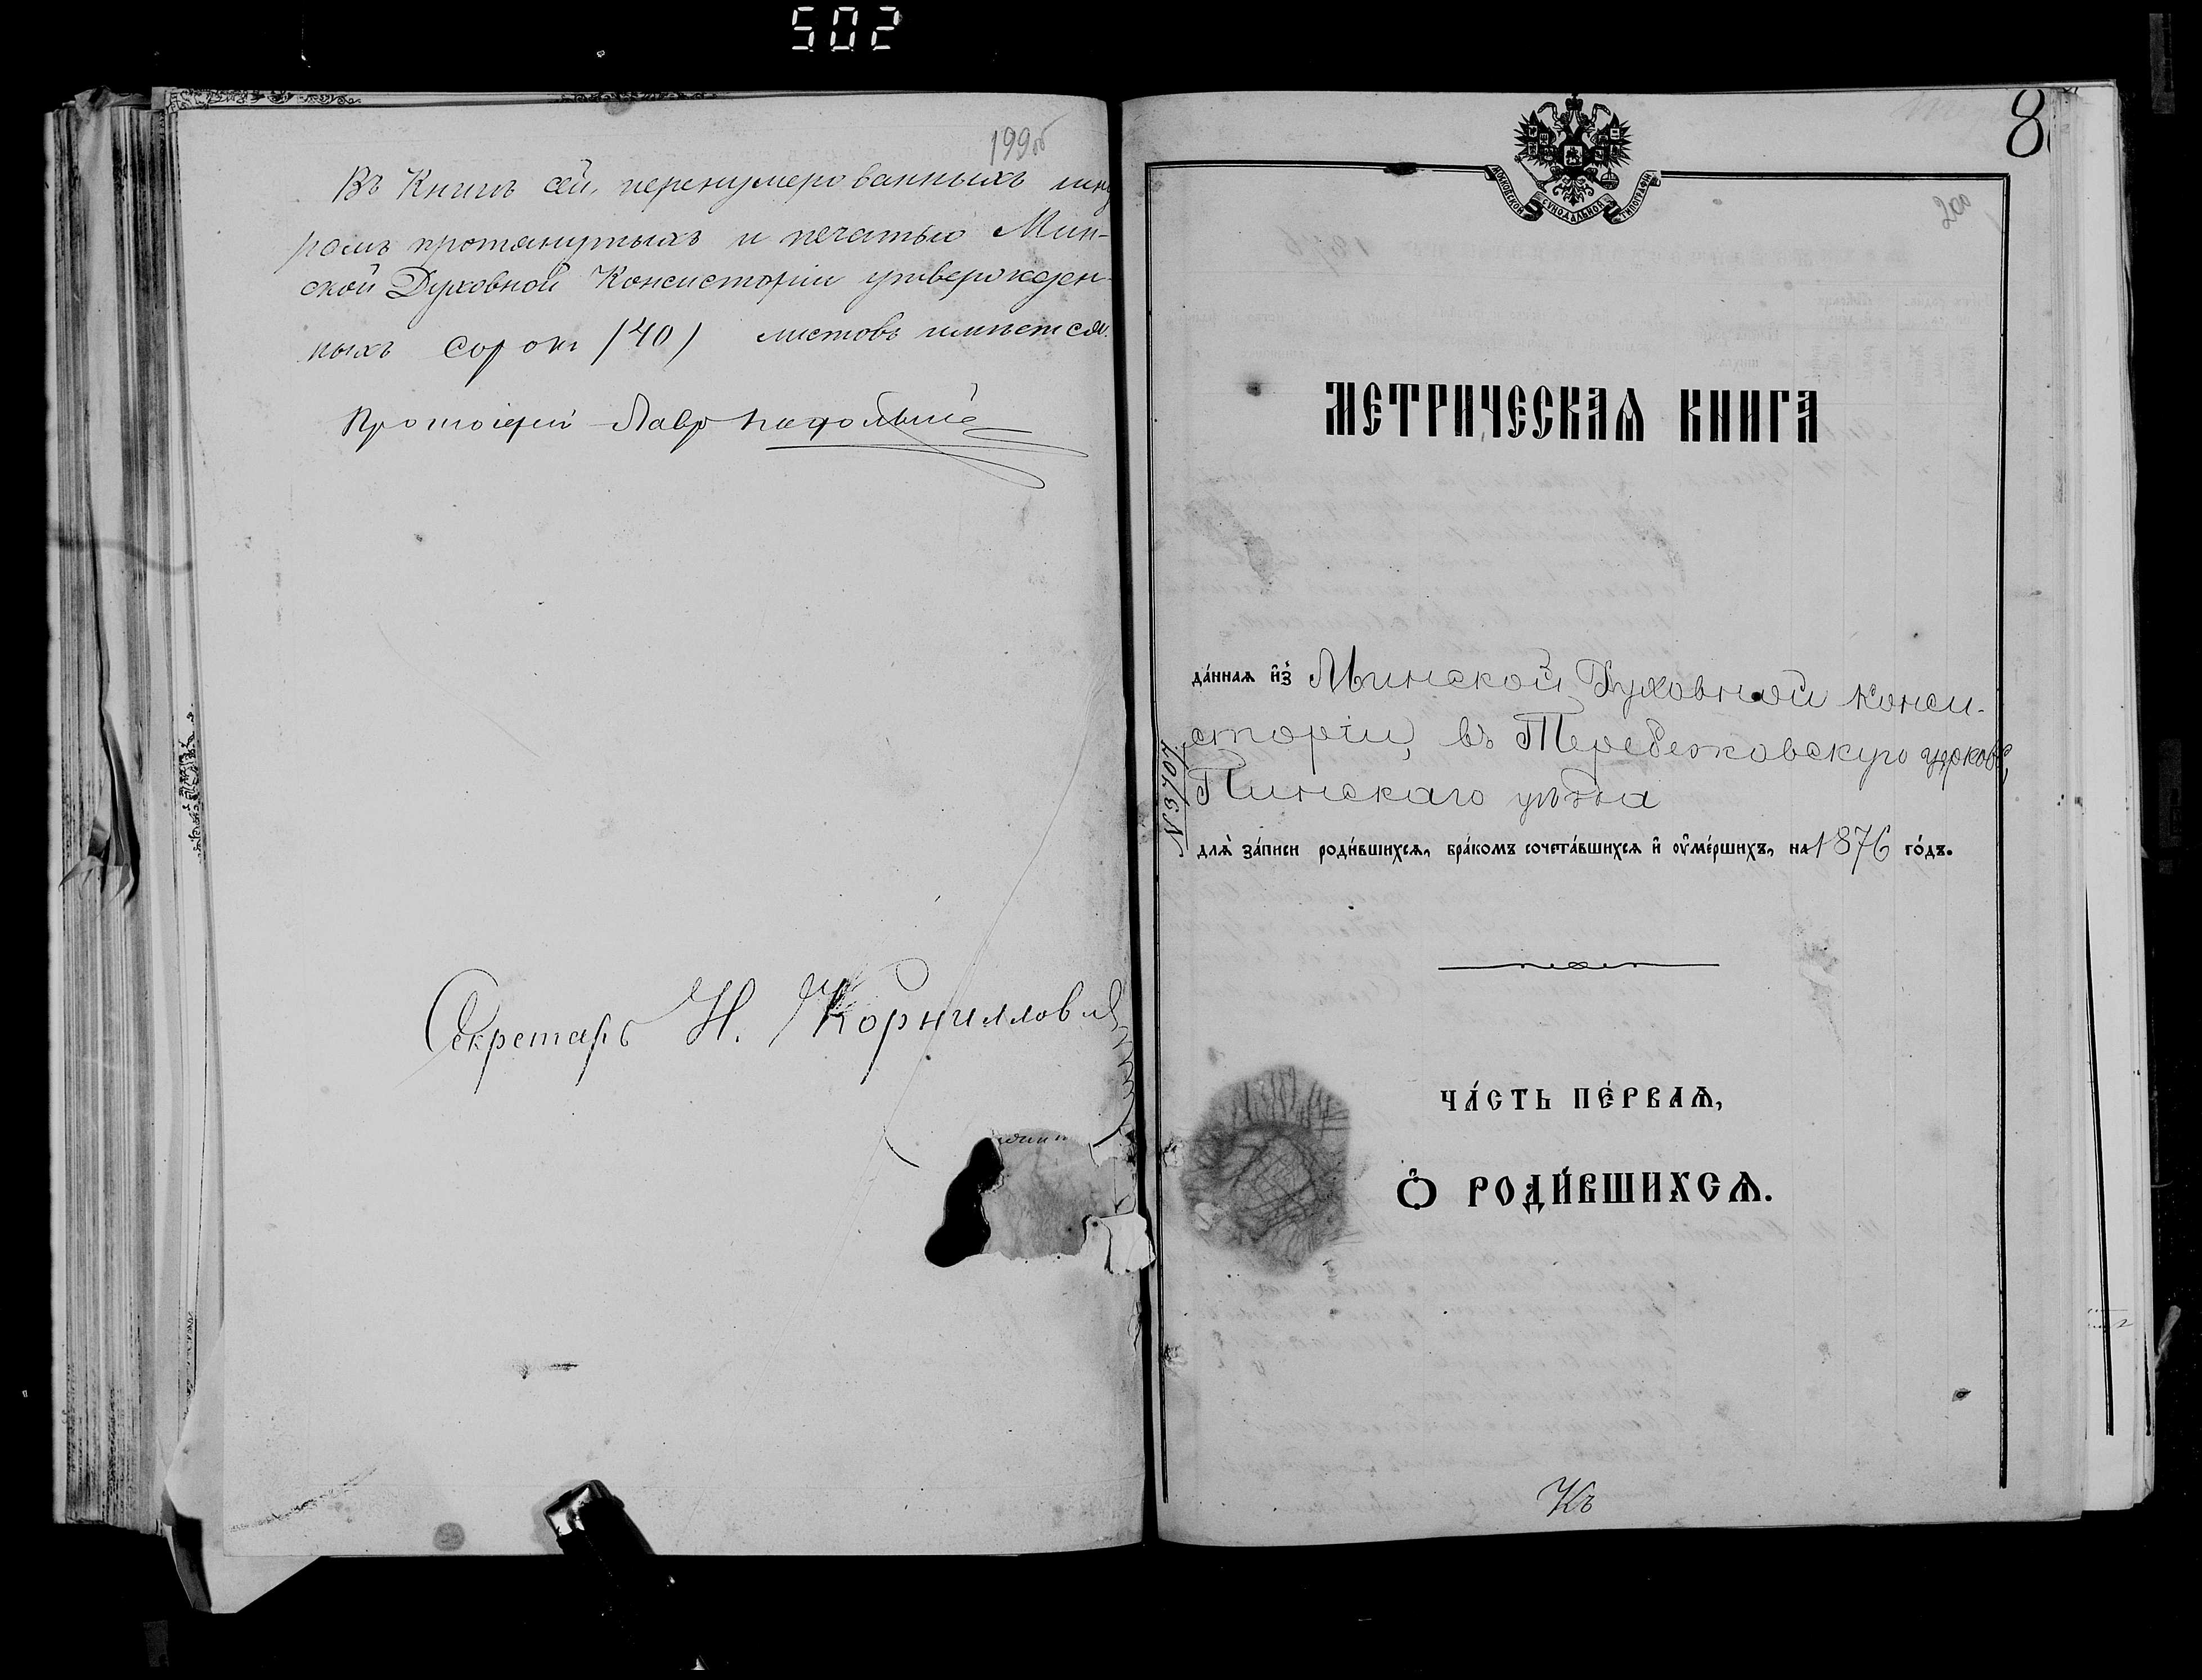 502
199об
Въ Книгѣ сей, перенумерованныхъ шну
ромъ протянутыхъ и печатью Мин-
ской Духовной Консисторіи утвержден-
ныхъ сорокъ (40) листовъ имѣется.
Протоіерей Лавр
Секретарь Н. Корниллов
8
200
МОСКОВСКОЙ СѴНОДАЛЬНОЙ ТИПОГРАФІИ
МЕТРИЧЕСКАѦ КНИГА
да́ннаѧ и҆з̾ Минской Духовной Конси-
сторіи, въ Теребежовскую церковь,
Пинскаго уѣзда
№ 3707
длѧ̀ за́писи роди́вшихсѧ, бра́комъ сочета́вшихсѧ и҆ ᲂу҆ме́ршихъ, на 1876 го́дъ.
ЧА́СТЬ ПЕ́РВАѦ,
Ѽ РОДИ́ВШИХСѦ.
Къ